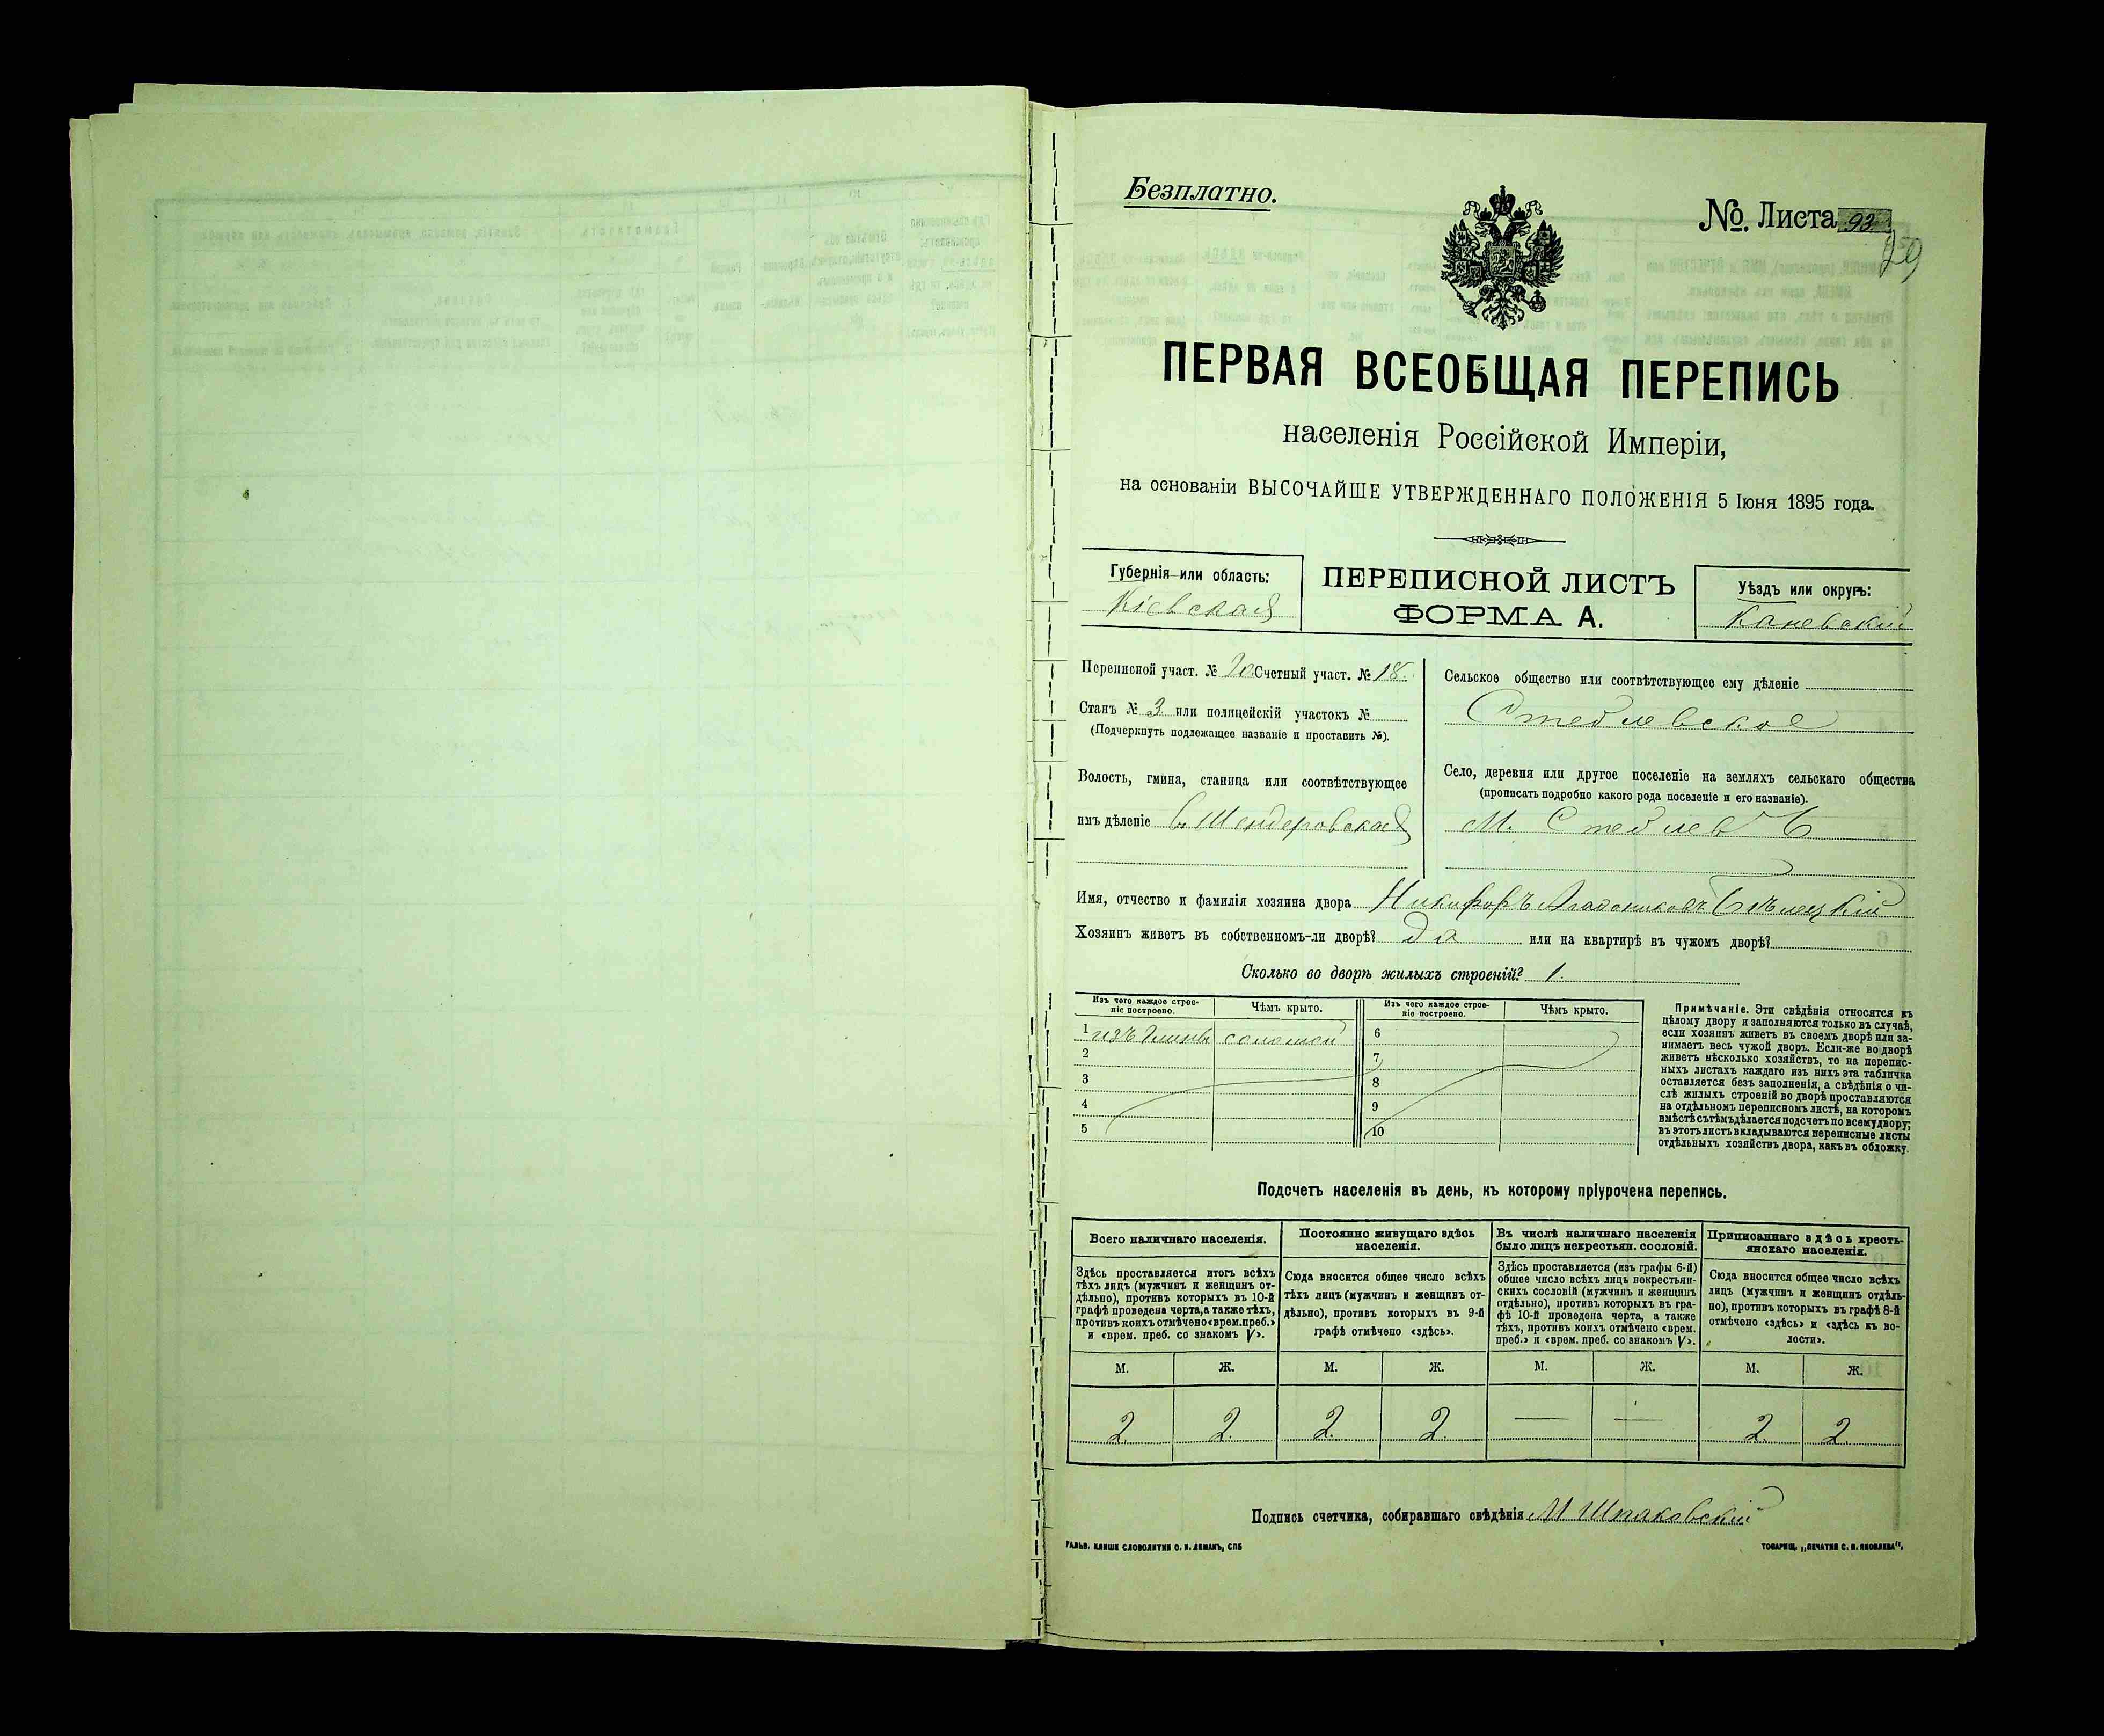 Безплатно.
№. Листа 93
ПЕРВАЯ ВСЕОБЩАЯ ПЕРЕПИСЬ
населенія Россійской Имперіи,
на основаніи ВЫСОЧАЙШЕ УТВЕРЖДЕННАГО ПОЛОЖЕНІЯ 5 Іюня 1895 года.
Губернія или область:
Кіевская
ПЕРЕПИСНОЙ ЛИСТЪ
ФОРМА А.
Уѣздъ или округъ:
Каневскій
Переписной участ. № 20 Счетный участ. № 18.
Станъ № 3 или полицейскій участокъ №
(Подчеркнуть подлежащее названіе и проставить №).
Волость, гмина, станица или соотвѣтствующее
имъ дѣленіе в. Шендеровская
Сельское общество или соотвѣтствующее ему дѣленіе
Стеблевское
Село, деревня или другое поселеніе на земляхъ сельскаго общества
(прописать подробно какого рода поселеніе и его названіе).
М. Стеблевъ
Имя, отчество и фамилія хозяина двора Никифоръ Бѣлецкій
Хозяинъ живетъ въ собственномъ-ли дворѣ? да или на квартирѣ въ чужомъ дворѣ?
Сколько во дворѣ жилыхъ строеній? 1.
Изъ чего каждое строе-
ніе построено.
Чѣмъ крыто.
Изъ чего каждое строе-
ніе построено.
Чѣмъ крыто.
1 изъ глины соломой 6
2 7
3 8
4 9
5 10
Примѣчаніе. Эти свѣдѣнія относятся къ
цѣлому двору и заполняются только въ случаѣ,
если хозяинъ живетъ въ своемъ дворѣ или за-
нимаетъ весь чужой дворъ. Если-же во дворѣ
живетъ нѣсколько хозяйствъ, то на перепис-
ныхъ листахъ каждаго изъ нихъ эта табличка
оставляется безъ заполненія, а свѣдѣнія о чи-
слѣ жилыхъ строеній во дворѣ проставляются
на отдѣльномъ переписномъ листѣ, на которомъ
вмѣстѣ съ тѣмъ дѣлается подсчетъ по всему двору;
въ этотъ листъ вкладываются переписные листы
отдѣльныхъ хозяйствъ двора, какъ въ обложку.
Подсчетъ населенія въ день, къ которому пріурочена перепись.
Всего наличнаго населенія.
Здѣсь проставляется итогъ всѣхъ
тѣхъ лицъ (мужчинъ и женщинъ от-
дѣльно), противъ которыхъ въ 10-й
графѣ проведена черта, а также тѣхъ,
противъ коихъ отмѣчено «врем. преб.»
и «врем. преб. со знакомъ V».
Постоянно живущаго здѣсь
населенія.
Сюда вносится общее число всѣхъ
тѣхъ лицъ (мужчинъ и женщинъ от-
дѣльно), противъ которыхъ въ 9-й
графѣ отмѣчено «здѣсь».
Въ числѣ наличнаго населенія
было лицъ некрестьян. сословій.
Здѣсь проставляется (изъ графы 6-й)
общее число всѣхъ лицъ некрестьян-
скихъ сословій (мужчинъ и женщинъ
отдѣльно), противъ которыхъ въ гра-
фѣ 10-й проведена черта, а также
тѣхъ, противъ коихъ отмѣчено «врем.
преб.» и «врем. преб. со знакомъ V».
Приписаннаго здѣсь кресть-
янскаго населенія.
Сюда вносится общее число всѣхъ
лицъ (мужчинъ и женщинъ отдѣль-
но), противъ которыхъ въ графѣ 8-й
отмѣчено «здѣсь» и «здѣсь къ во-
лости».
М. Ж. М. Ж. М. Ж. М. Ж.
2. 2. 2. 2. — — 2. 2
Подпись счетчика, собиравшаго свѣдѣнія М Шпаковскій
ГАЛЬВ. КЛИШЕ СЛОВОЛИТНИ О. И. ЛЕМАНЪ, СПБ
ТОВАРИЩ. „ПЕЧАТНЯ С. П. ЯКОВЛЕВА".